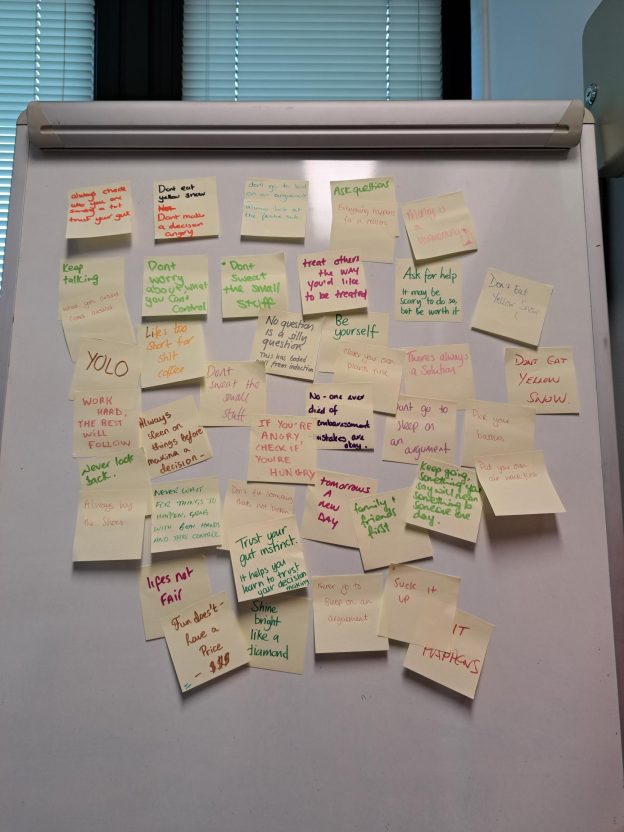 always check
who you are
sending a txt
trust your gut
Dont eat
yellow snow
Dont make
a decision
angry
dont go to bed
on an argument
always look at
the positive side
Ask questions
Everything happens
for a reason
Money is
a
Keep
talking
what goes around
comes around
Dont
worry
about what
you cant
control
Dont
Sweat
the small
stuff
treat others
the way
you'd like
to be treated
Ask for help
It may be
scary to do so,
but be worth it
Don't Eat
Yellow Snow!
Life's too
short for
shit
coffee
No question
is a silly
question
This has ended
from induction
Be
yourself
YOLO
Dont
sweat the
small
stuff
Theres always
a solution
DONT EAT
YELLOW
SNOW.
WORK
HARD,
THE REST
WILL
FOLLOW
Always
sleep on
things before
making a
decision-
IF YOU'RE
ANGRY,
CHECK IF
YOU'RE
HUNGRY
No-one ever
died of
embarassment
mistakes are
okay.
Dont go to
sleep on
an
argument
Pick your
battles
Never look
back.
Always buy
the shoes
NEVER WAIT
FOR THINGS TO
HAPPEN, GRAB
WITH BOTH HANDS
AND TAKE CONTROL
Dont fix something
thats not broken
tomorrows
A
new
DAY
family +
friends
first
Keep going,
something you
say will mean
something to
someone one
day.
Trust your
gut instinct.
It helps you
learn to trust
your decision
making
lifes not
FAIR
Fun does't-
have a
Price
- $$$
Shine
bright
like a
diamond
Never go to
sleep on an
arguement
Suck it
up
IT
HAPPENS